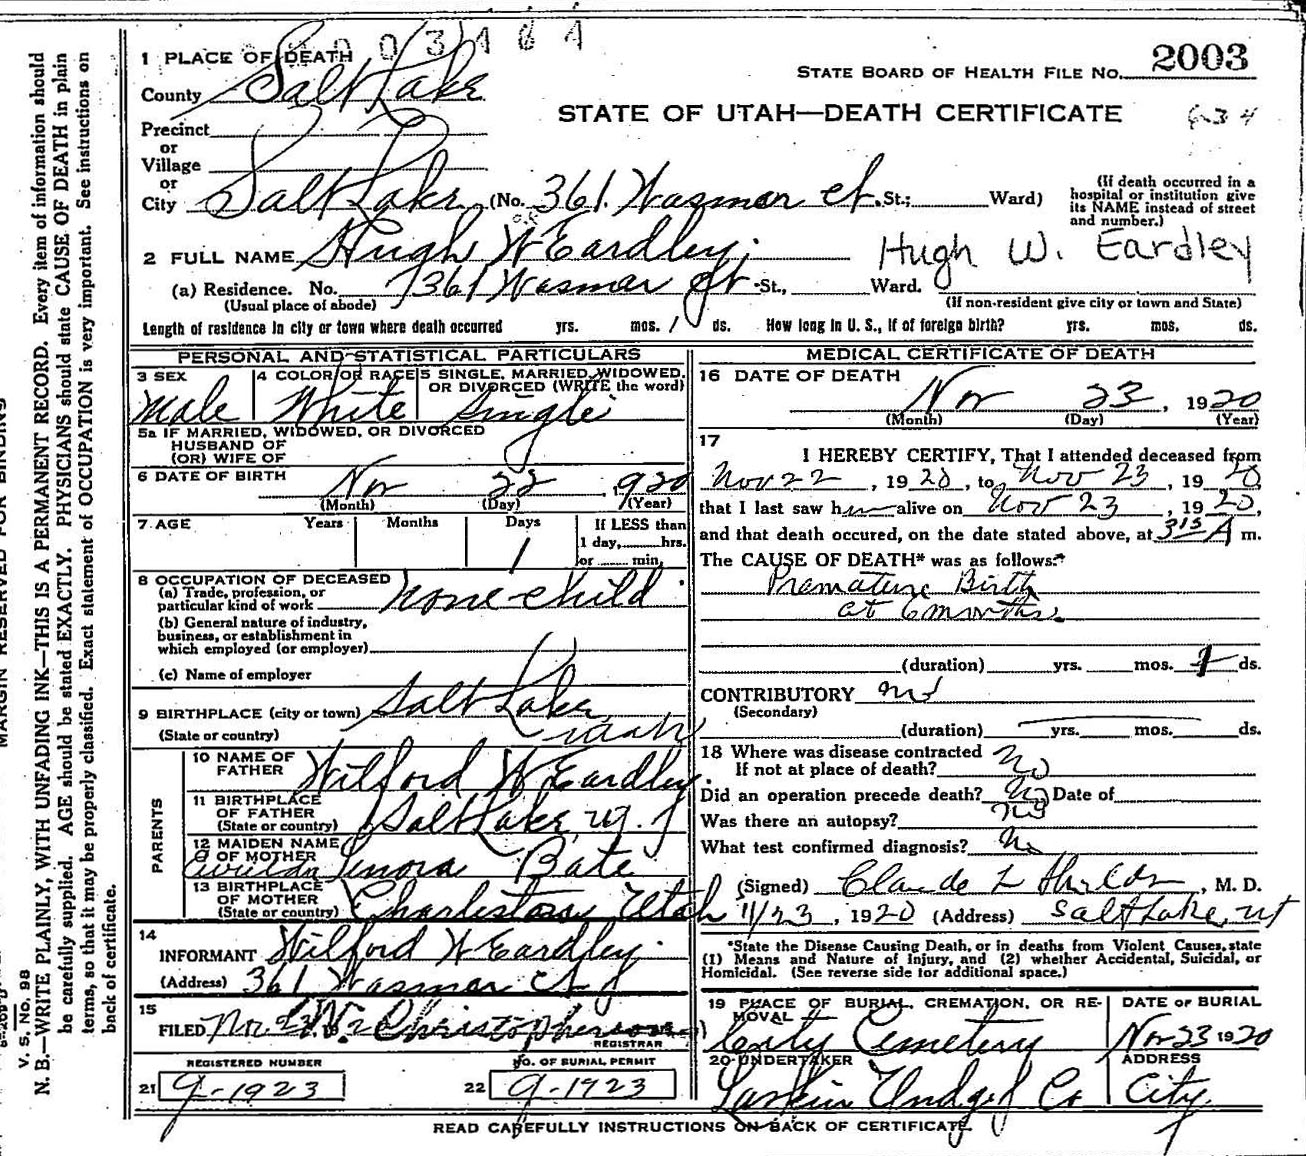 003164
1 PLACE OF DEATH
STATE BOARD OF HEALTH FILE NO. 2003
County Salt Lake
STATE OF UTAH—DEATH CERTIFICATE
634
Precinct
or
Village
or
City Salt Lake (No. 361 Wasmer Ct. St.; Ward)
(If death occurred in a
hospital or institution give
its NAME instead of street
and number.)
2 FULL NAME Hugh W Eardley. Hugh W. Eardley
(a) Residence. No. 361 Wasmer Ct St., Ward.
(Usual place of abode) (If non-resident give city or town and State)
Length of residence in city or town where death occurred yrs. mos. 1 ds. How long in U. S., if of foreign birth? yrs. mos. ds.
PERSONAL AND STATISTICAL PARTICULARS
3 SEX 4 COLOR OR RACE 5 SINGLE, MARRIED, WIDOWED,
OR DIVORCED (WRITE the word)
Male White Single
5a IF MARRIED, WIDOWED, OR DIVORCED
HUSBAND OF
(OR) WIFE OF
6 DATE OF BIRTH Nov 22, 1920
(Month) (Day) (Year)
7 AGE Years Months Days If LESS than
1 1 day, hrs.
or min.
8 OCCUPATION OF DECEASED
(a) Trade, profession, or
particular kind of work none-child
(b) General nature of industry,
business, or establishment in
which employed (or employer)
(c) Name of employer
9 BIRTHPLACE (city or town) Salt Lake
(State or country) Utah
PARENTS
10 NAME OF
FATHER Wilford W Eardley.
11 BIRTHPLACE
OF FATHER
(State or country) Salt Lake, Ut.
12 MAIDEN NAME
OF MOTHER Lenora Bate
13 BIRTHPLACE
OF MOTHER
(State or country) Charleston Utah
14
INFORMANT Wilford W Eardley.
(Address) 361 Wasmer Ct
15
FILED Nov. 23 Christopherson
REGISTRAR
REGISTERED NUMBER NO. OF BURIAL PERMIT
21 9-1923 22 9-1923
MEDICAL CERTIFICATE OF DEATH
16 DATE OF DEATH
Nov 23, 1920
(Month) (Day) (Year)
17
I HEREBY CERTIFY, That I attended deceased from
Nov 22, 1920, to Nov 23, 1920,
that I last saw him alive on Nov 23, 1920,
and that death occured, on the date stated above, at 315 A m.
The CAUSE OF DEATH* was as follows:*
Premature Birth
at 6 months.
(duration) yrs. mos. 1 ds.
CONTRIBUTORY no
(Secondary)
(duration) yrs. mos. ds.
18 Where was disease contracted
If not at place of death? No
Did an operation precede death? No Date of
Was there an autopsy? No
What test confirmed diagnosis? No
(Signed) Claude L Shields, M. D.
11/23, 1920 (Address) Salt Lake, Ut
*State the Disease Causing Death, or in deaths from Violent Causes, state
(1) Means and Nature of Injury, and (2) whether Accidental, Suicidal, or
Homicidal. (See reverse side for additional space.)
19 PLACE OF BURIAL, CREMATION, OR RE-
MOVAL
City Cemetery
DATE OF BURIAL
Nov 23 1920
20 UNDERTAKER
Larkin Undg Co
ADDRESS
City
READ CAREFULLY INSTRUCTIONS ON BACK OF CERTIFICATE.
MARGIN RESERVED FOR BINDING
V. S. No. 98
N. B.—WRITE PLAINLY, WITH UNFADING INK—THIS IS A PERMANENT RECORD. Every item of information should
be carefully supplied. AGE should be stated EXACTLY. PHYSICIANS should state CAUSE OF DEATH in plain
terms, so that it may be properly classified. Exact statement of OCCUPATION is very important. See instructions on
back of certificate.